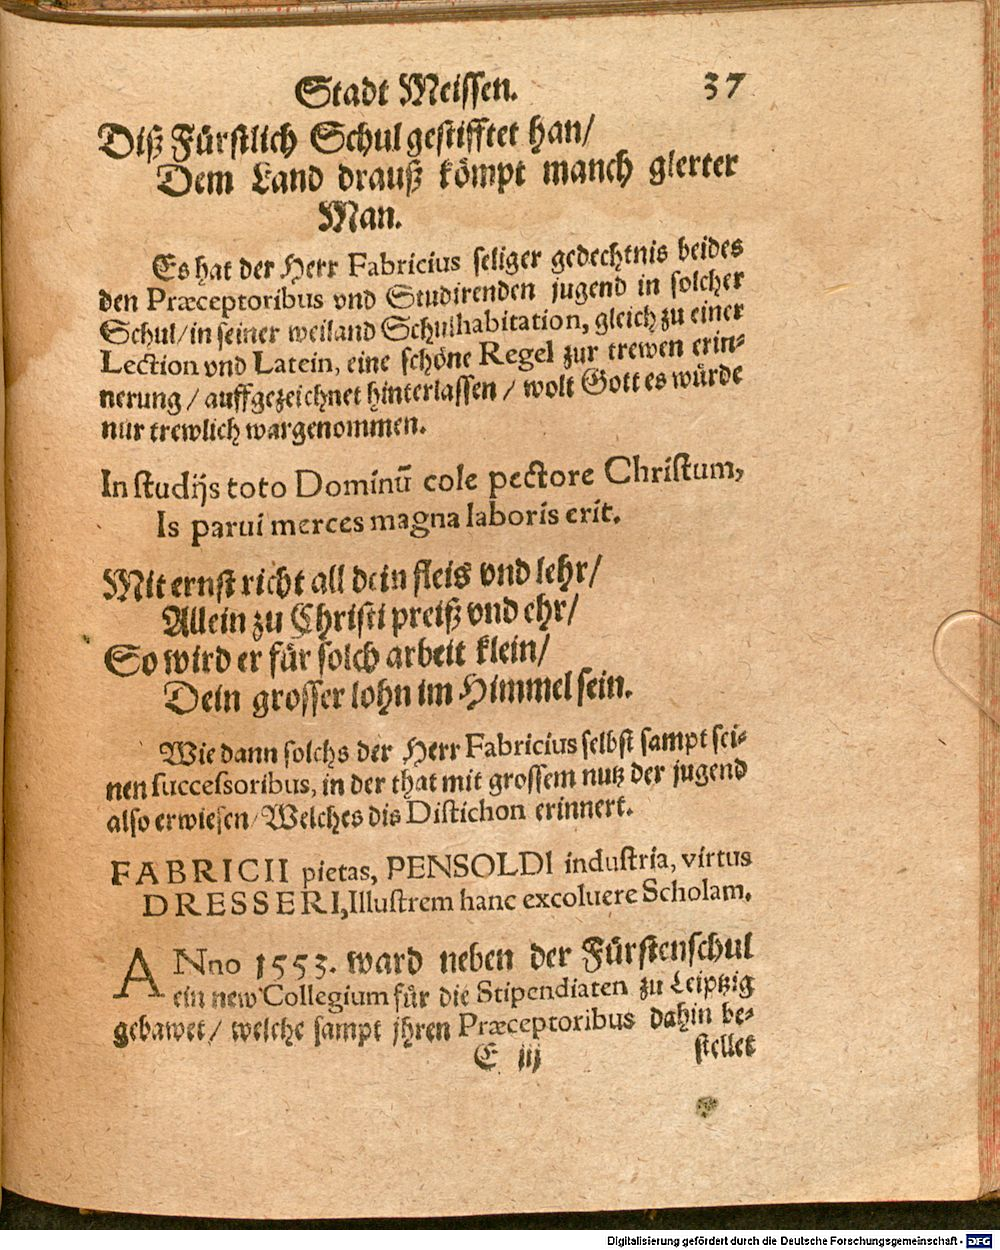 Stadt Meissen. 37
Diß Fürstlich Schul gestifftet han/
Dem Land drauß kömpt manch glerter
Man.
Es hat der Herr Fabricius seliger gedechtnis beides
den Præceptoribus vnd Studirenden jugend in solcher
Schul/ in seiner weiland Schulhabitation, gleich zu einer
Lection vnd Latein, eine schöne Regel zur trewen erin-
nerung / auffgezeichnet hinterlassen / wolt Gott es würde
nur trewlich wargenommen.
In studijs toto Dominū cole pectore Christum,
Is parui merces magna laboris erit.
Mit ernst richt all dein fleis vnd lehr/
Allein zu Christi preiß vnd ehr/
So wird er für solch arbeit klein/
Dein grosser lohn im Himmel sein.
Wie dann solchs der Herr Fabricius selbst sampt sei-
nen successoribus, in der that mit grossem nutz der jugend
also erwiesen/ Welches dis Distichon erinnert.
FABRICII pietas, PENSOLDI industria, virtus
DRESSERI, Illustrem hanc excoluere Scholam.
ANno 1553. ward neben der Fürstenschul
ein new Collegium für die Stipendiaten zu Leiptzig
gebawet/ welche sampt jhren Præceptoribus dahin be-
E iij stellet
Digitalisierung gefördert durch die Deutsche Forschungsgemeinschaft - DFG